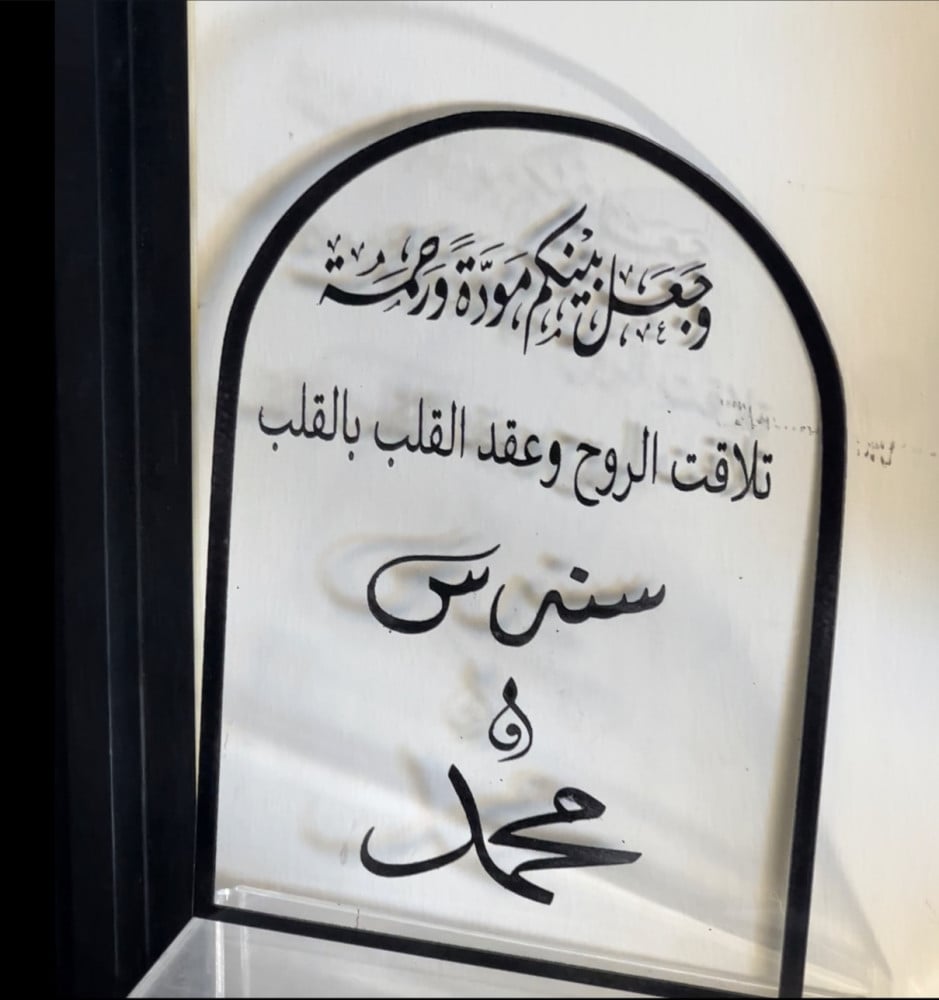 وَجَعَلَ بَيْنَكُم مَوَدَّةً وَرَحْمَةً
تلاقت الروح وعقد القلب بالقلب
و
محمد